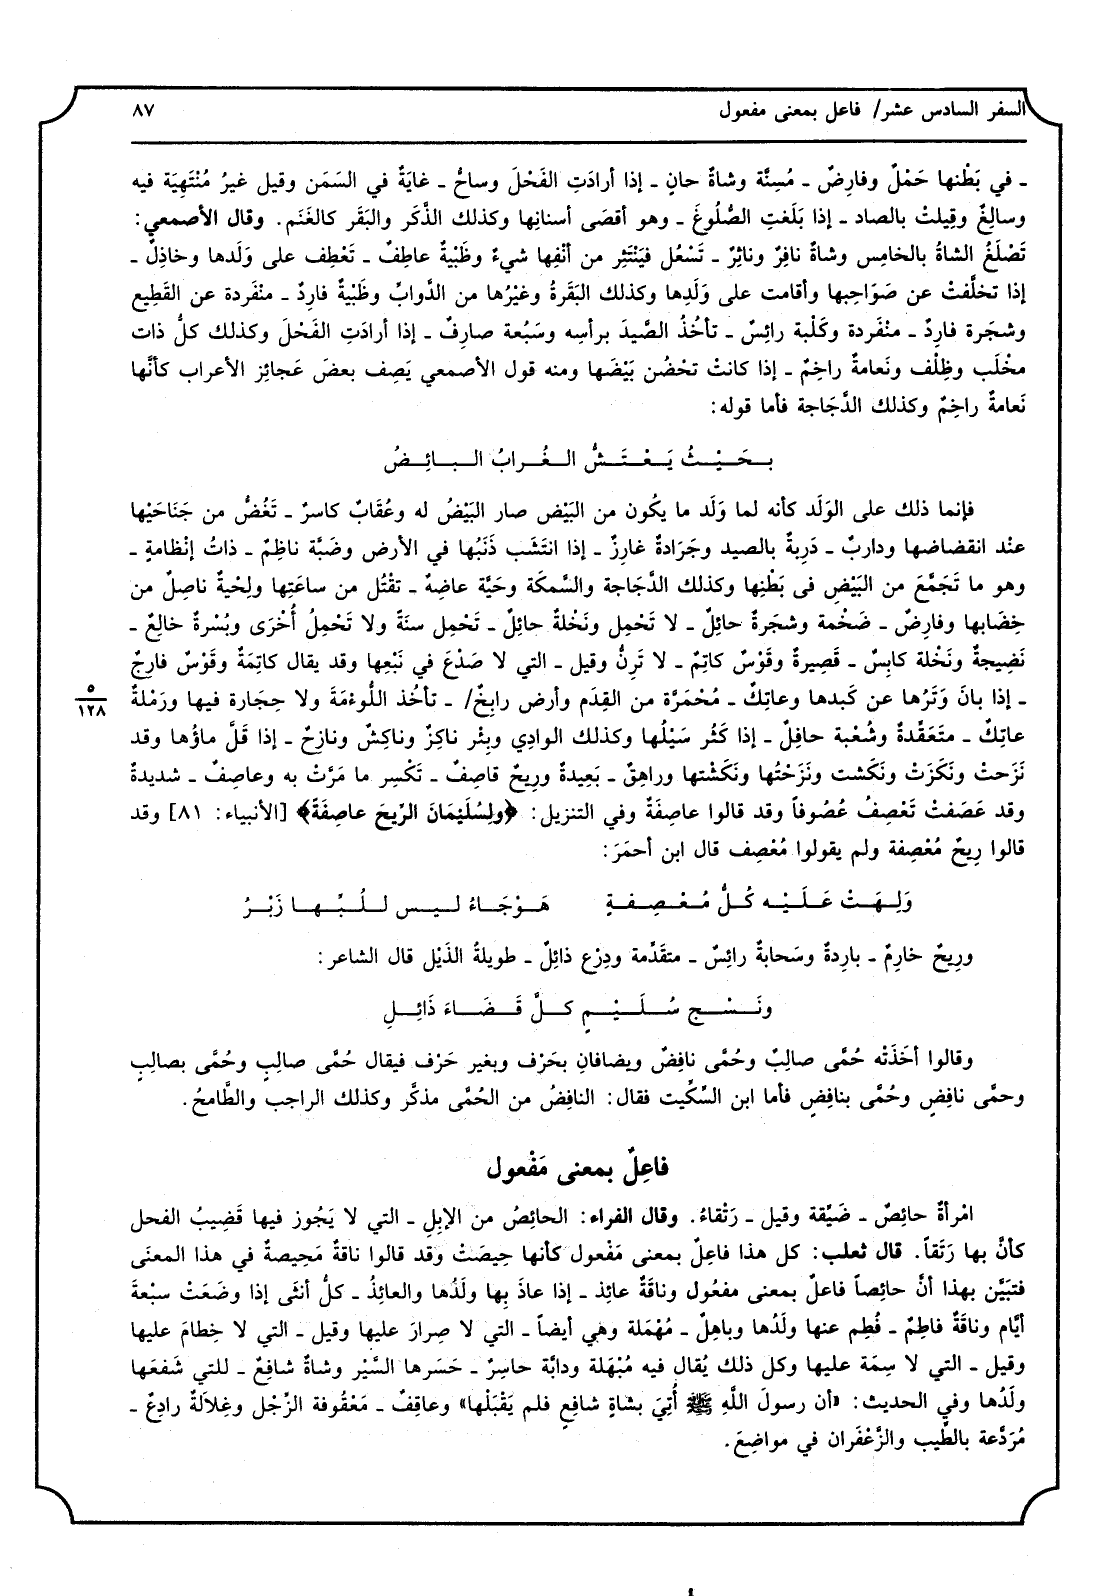 السفر السادس عشر/ فاعل بمعنى مفعول
٨٧
ـ في بَطْنها حَمْلٌ وفارِضٌ ـ مُسِنَّة وشاةٌ حانٍ ـ إذا أرادَتِ الفَحْلَ وساحٌّ ـ غايَةٌ في السِّمَن وقيل غيرُ مُنْتَهِيَة فيه
وسالِغٌ وقِيلتْ بالصاد ـ إذا بَلَغتِ الصُّلُوغَ ـ وهو أقصَى أسنانِها وكذلك الذَّكَر والبَقَر كالغَنَم. وقال الأصمعي:
تَصْلَغُ الشاةُ بالخامِس وشاةٌ نافِرٌ وناثِرٌ ـ تَسْعُل فيَنْتَثِر من أنْفِها شيءٌ وظَبْيةٌ عاطِفٌ ـ تَعْطِف على وَلَدها وخاذِلٌ ـ
إذا تخلَّفتْ عن صَوَاحِبها وأقامت على وَلَدِها وكذلك البَقَرةُ وغيْرُها من الدَّوابِّ وظَبْيةٌ فارِدٌ ـ منْفَردة عن القَطِيع
وشجَرة فارِدٌ ـ منْفَردة وكَلْبة رائِسٌ ـ تأخُذُ الصَّيدَ برأسِه وسَبُعة صارِفٌ ـ إذا أرادَتِ الفَحْلَ وكذلك كلُّ ذات
مخْلَب وظِلْف ونَعامةٌ راخِمٌ ـ إذا كانتْ تحْضُن بَيْضَها ومنه قول الأصمعي يَصِف بعضَ عَجائِز الأعراب كأنَّها
نَعامةٌ راخِمٌ وكذلك الدَّجَاجة فأما قوله:
بـحَـيْـثُ يَـعْـتَـشُّ الـغُـرابُ الـبـائِـضُ
فإنما ذلك على الوَلَد كأنه لما وَلَد ما يكُون من البَيْض صار البَيْضُ له وعُقَابٌ كاسرٌ ـ تَغُضُّ من جَنَاحَيْها
عنْد انقضاضها وداربٌ ـ دَرِبةٌ بالصيد وجَرَادةٌ غارِزٌ ـ إذا انتَشَب ذَنَبُها في الأرض وضَبَّة ناظِمٌ ـ ذاتُ إنْظامةٍ ـ
وهو ما تَجَمَّعَ من البَيْضِ فى بَطْنِها وكذلك الدَّجَاجة والسَّمكَة وحَيَّة عاضِهٌ ـ تقْتُل من ساعَتِها ولِحْيةٌ ناصِلٌ من
خِضَابها وفارِضٌ ـ ضَخْمة وشجَرةٌ حائِلٌ ـ لا تَحْمِل ونَخْلة حائِلٌ ـ تَحْمِل سنَةً ولا تَحْمِلُ أُخْرَى وبُسْرةٌ خالِعٌ ـ
نَضِيجةٌ ونَخْلة كابِسٌ ـ قَصِيرةٌ وقَوْسٌ كاتِمٌ ـ لا تَرِنُّ وقيل ـ التي لا صَدْعَ في نَبْعِها وقد يقال كاتِمَةٌ وقَوْسٌ فارِجٌ
ـ إذا بانَ وَتَرُها عن كَبِدها وعاتِكٌ ـ مُحْمَرَّة من القِدَم وأرض رابِخٌ/ ـ تأخُذ اللُّوءَمَةَ ولا حِجَارة فيها ورَمْلةٌ
٥
١٢٨
عاتِكٌ ـ متَعَقِّدةٌ وشُعْبة حافِلٌ ـ إذا كَثُر سَيْلُها وكذلك الوادِي وبِئْر ناكِزٌ وناكِشٌ ونازِحٌ ـ إذا قَلَّ ماؤُها وقد
نَزَحتْ ونَكَزَتْ ونَكَشت ونَزَحْتُها ونَكَشْتها وراهِقٌ ـ بَعِيدةٌ ورِيحٌ قاصِفٌ ـ تَكْسِر ما مَرَّتْ به وعاصِفٌ ـ شديدةٌ
وقد عَصَفتْ تَعْصِفُ عُصُوفاً وقد قالوا عاصِفَةٌ وفي التنزيل: ﴿ولِسُلَيْمَانَ الرِّيحَ عاصِفَةً﴾ [الأنبياء: ٨١] وقد
قالوا رِيحٌ مُعْصِفة ولم يقولوا مُعْصِف قال ابن أحمَرَ:
وَلِـهَـتْ عَـلَـيْـه كُـلُّ مُـعْـصِـفـةٍ هَـوْجَـاءُ لـيـس لـلُـبِّـهـا زَبْـرُ
ورِيحٌ خارِمٌ ـ بارِدةٌ وسَحابةٌ رائِسٌ ـ متقَدِّمة ودِرْع ذائِلٌ ـ طويلةُ الذَيْل قال الشاعر:
ونَـسْـج سُـلَـيْـمٍ كـلَّ قَـضَّـاءَ ذَائِـلِ
وقالوا أخَذَتْه حُمَّى صالِبٌ وحُمَّى نافِضٌ ويضافانِ بحَرْف وبغير حَرْف فيقال حُمَّى صالبٍ وحُمَّى بصالِبٍ
وحمَّى نافِضٍ وحُمَّى بنافِضٍ فأما ابن السِّكِّيت فقال: النافِضُ من الحُمَّى مذكَّر وكذلك الراجب والطَّامحُ.
فاعِلٌ بمعنى مَفْعول
امْرأةٌ حائِصٌ ـ ضَيِّقة وقيل ـ رَتْقاءُ. وقال الفراء: الحائِصُ من الإبلِ ـ التي لا يَجُوز فيها قَضِيبُ الفحل
كأنَّ بها رَتَقاً. قال ثعلب: كل هذا فاعِلٌ بمعنى مَفْعول كأنها حِيصَتْ وقد قالوا ناقةٌ مَحِيصةٌ في هذا المعنَى
فتبَيَّن بهذا أنَّ حائِصاً فاعلٌ بمعنى مفعُول وناقَةٌ عائِذ ـ إذا عاذَ بِها ولَدُها والعائِذُ ـ كلُّ أنثَى إذا وضَعَتْ سبْعةَ
أيَّام وناقَةٌ فاطِمٌ ـ فُطِم عنها ولَدُها وباهِلٌ ـ مُهْمَلة وهي أيضاً ـ التي لا صِرارَ عليها وقيل ـ التي لا خِطامَ عليها
وقيل ـ التي لا سِمَة عليها وكل ذلك يُقال فيه مُبْهَلة ودابَّة حاسِرٌ ـ حَسَرها السَّيْر وشاةٌ شافِعٌ ـ للتي شَفعَها
ولَدُها وفي الحديث: «أن رسولَ اللَّهِ ﷺ أُتِيَ بشاةٍ شافِعٍ فلم يَقْبَلْها» وعاقِفٌ ـ مَعْقُوفة الرِّجْل وغِلاَلةٌ رادِعٌ ـ
مُرَدَّعة بالطِّيب والزَّعْفَران في مواضِعَ.